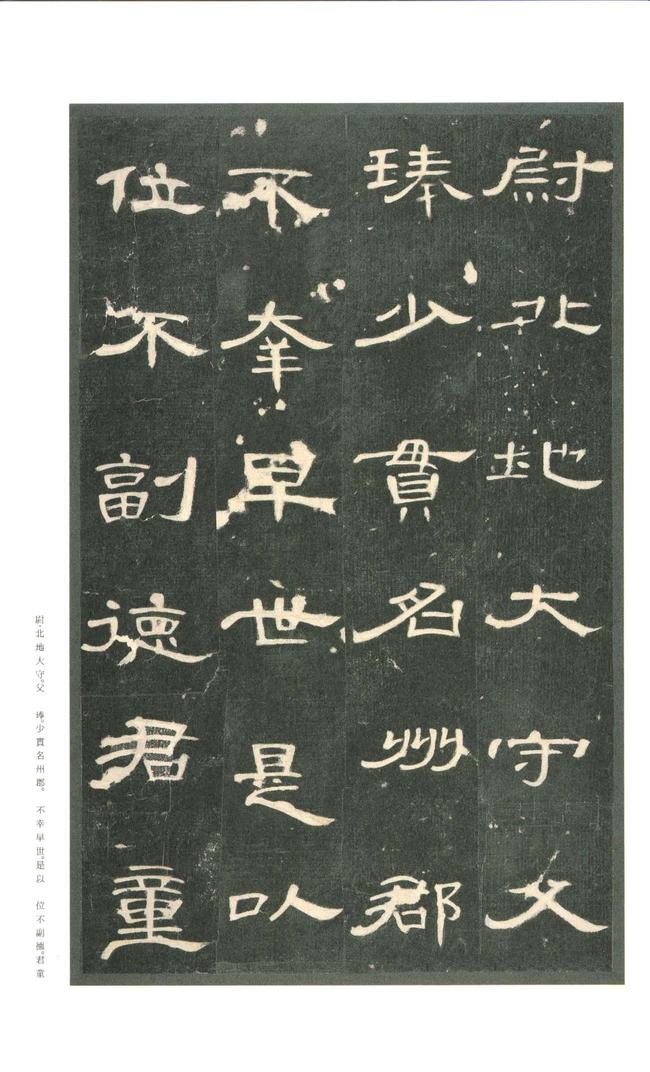 尉北地大守父
㻫少貫名州郡
不幸早世是以
位不副德君童
尉。北地大守。父　㻫。少貫名州郡。　不幸早世。是以　位不副德。君童